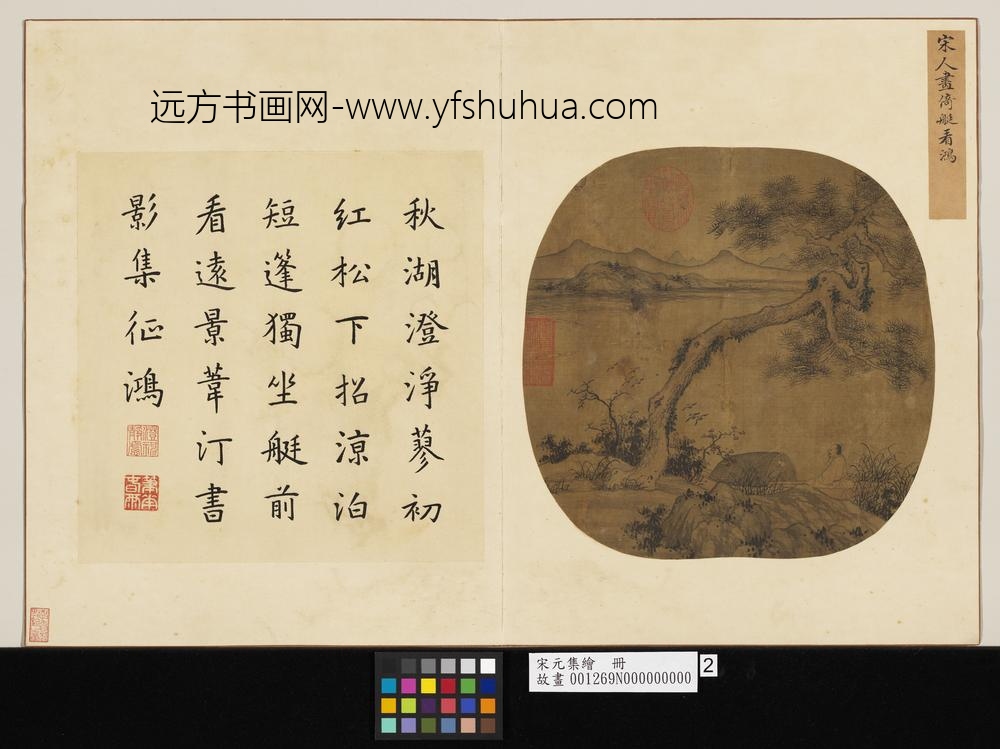 远方书画网-www.yfshuhua.com
宋人畫倚艇看鴻
秋湖澄淨蓼初
红松下招涼泊
短蓬獨坐艇前
看遠景葦汀書
影集征鴻
宋元集繪 冊
故畫 001269N000000000
2